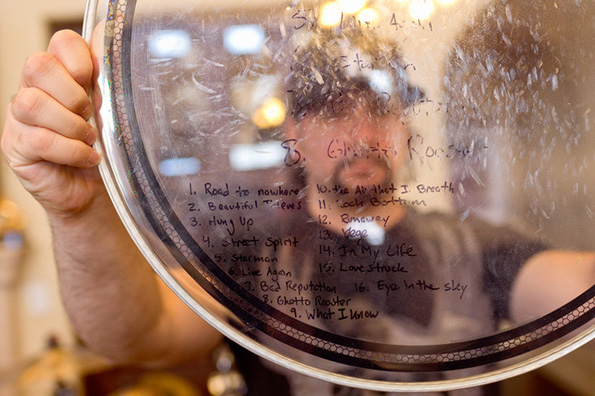 8. Ghetto Rooster
1. Road to nowhere
2. Beautiful Thieves
3. Hung Up
4. Street Spirit
5. Starman
6. Live Again
7. Bad Reputation
8. Ghetto Rooster
9. What I know
10. the Air that I Breath
11. Rock Bottom
12. Runaway
13. Vega
14. In My Life
15. Lovestruck
16. Eye in the sky